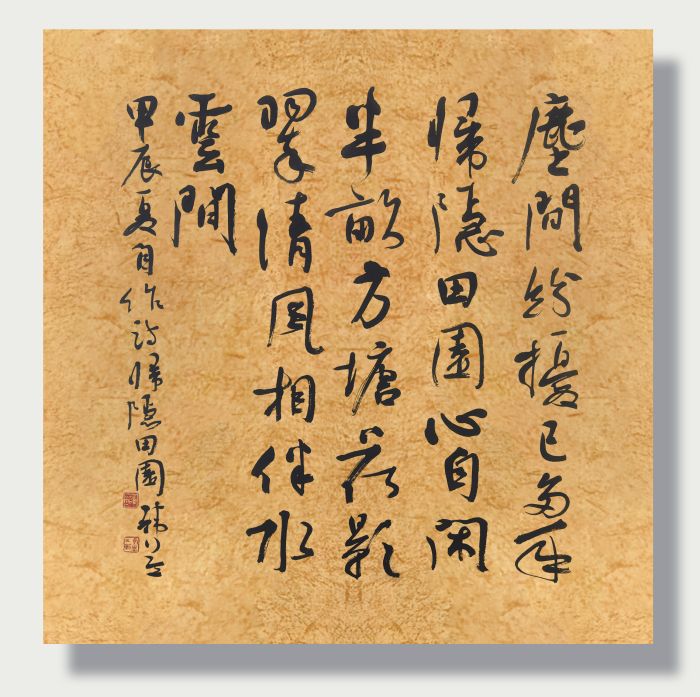 塵間紛擾已多年
歸隱田園心自閑
半畝方塘荷影
翠清風相伴水
雲間
甲辰夏自作詩歸隱田園